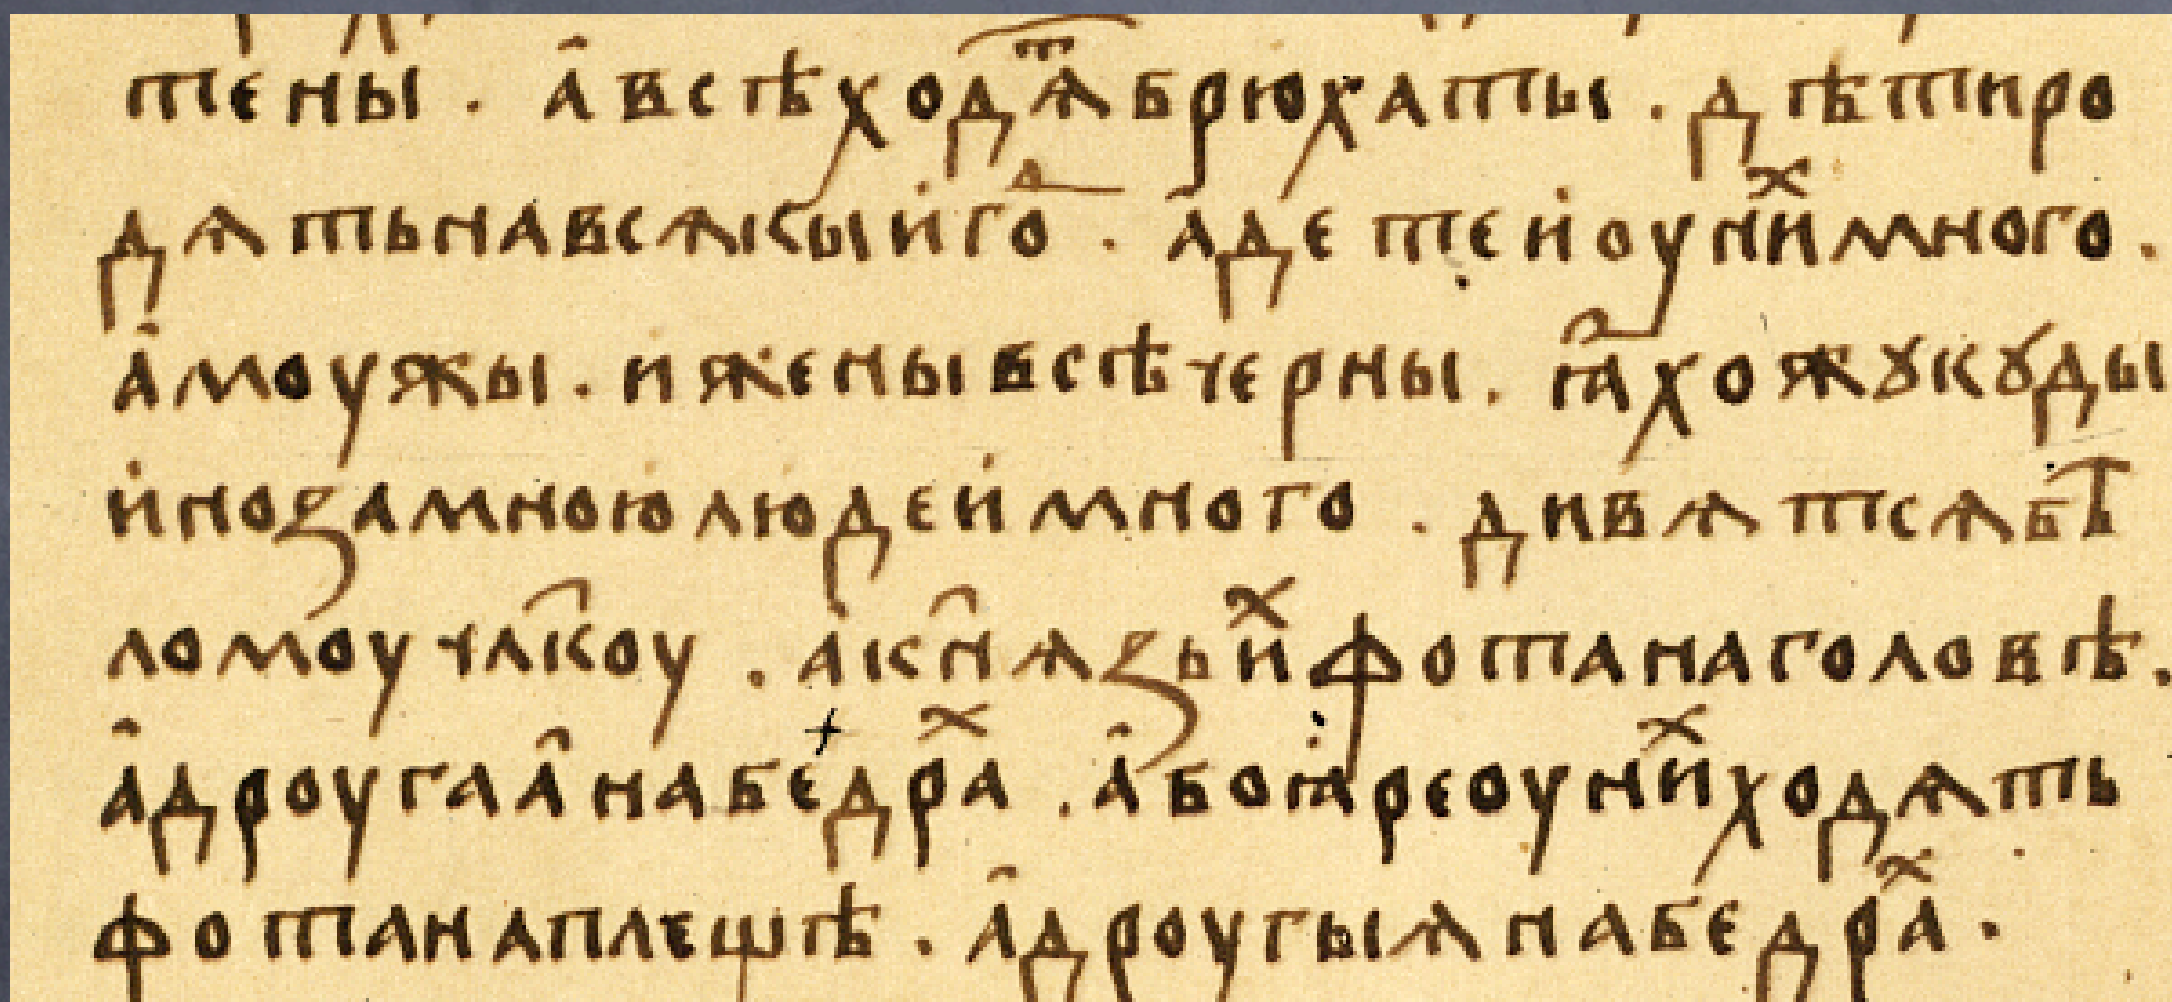 тены . а всѣ ходѧⷮ брюхаты . дѣти ро
дѧть на всѧкый гоⷣ . а детей оу ниⷯ много .
а моужы . и жены всѣ черны . ꙗ хожꙋ кꙋды
ино за мною людей много . дивѧтсѧ бѣ
ломоу чл҃коу . а кн҃ѧзь иⷯ фота на головѣ .
а дроугаа на бедраⷯ . а боꙗре оу ниⷯ ходѧть
фота на плещѣ . а дроугыѧ на бедраⷯ .